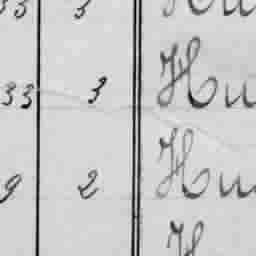 33 3 Hu
33 3 Hu
9 2 Hu
H